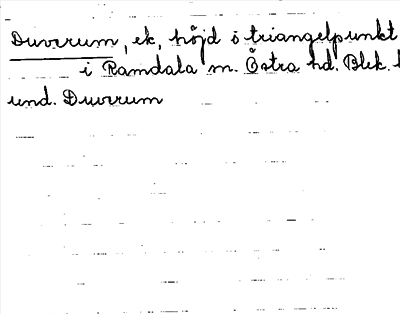 Duvrum, ek, höjd o triangelpunkt
i Ramdala sn. Östra hd. Blek. l
und. Duvrum